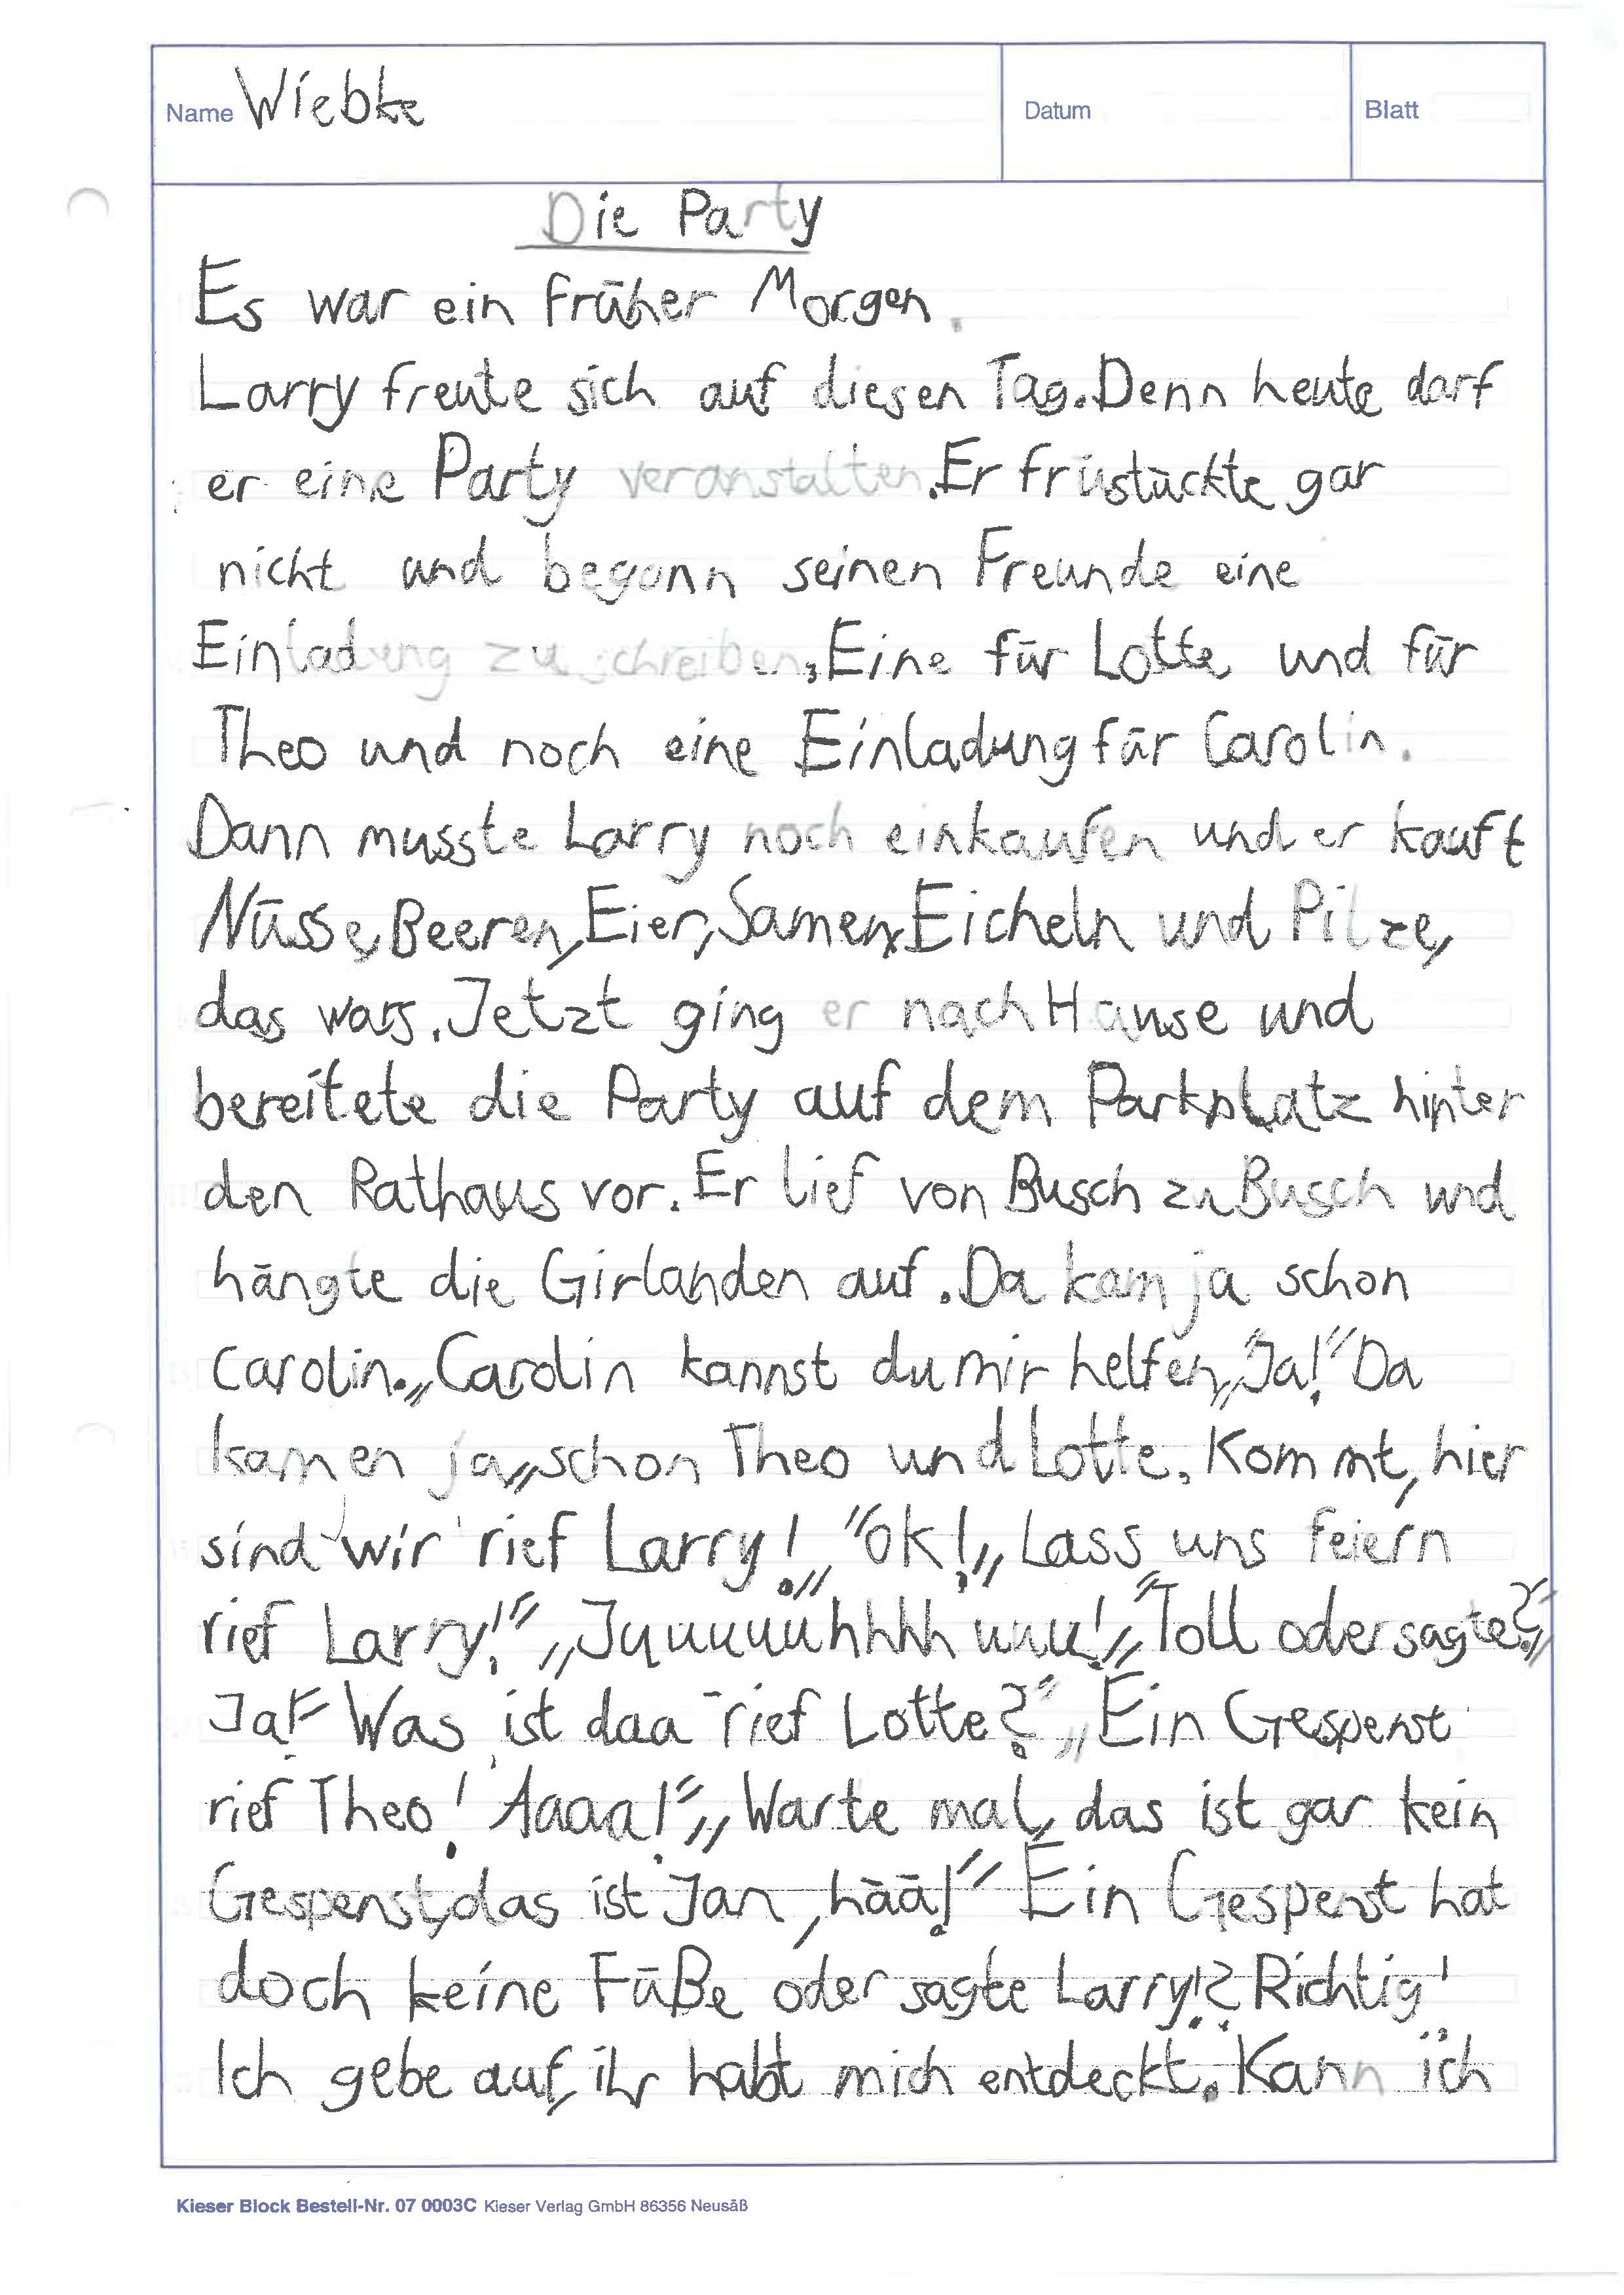 Name Wiebke Datum Blatt
Die Party
Es war ein früher Morgen.
Larry freute sich auf diesen Tag. Denn heute darf
er eine Party veranstalten. Er früstückte gar
nicht und begann seinen Freunde eine
Einladung zu schreiben, Eine für Lotte und für
Theo und noch eine Einladung für Carolin.
Dann musste Larry noch einkaufen und er kauft
Nüsse, Beeren, Eier, Samen, Eicheln und Pilze,
das wars. Jetzt ging er nach Hause und
bereitete die Party auf dem Parkplatz hinter
den Rathaus vor. Er lief von Busch zu Busch und
hängte die Girlanden auf. Da kam ja schon
Carolin. „Carolin kannst du mir helfen,„"Ja!" Da
kamen ja„schon Theo und Lotte. Kommt, hier
sind wir rief Larry!„ "Ok!„ Lass uns feiern
rief Larry!" „Juuuuuuhhhh uuu!„ "Toll oder sagte?"„
Ja!" Was ist daa rief Lotte?" „Ein Gespenst
rief Theo! Aaaa!" „Warte mal, das ist gar kein
Gespenst, das ist Jan, hää!" Ein Gespenst hat
doch keine Füße oder sagte Larry!? Richtig!
Ich gebe auf, ihr habt mich entdeckt. Kann ich
Kieser Block Bestell-Nr. 07 0003C Kieser Verlag GmbH 86356 Neusäß